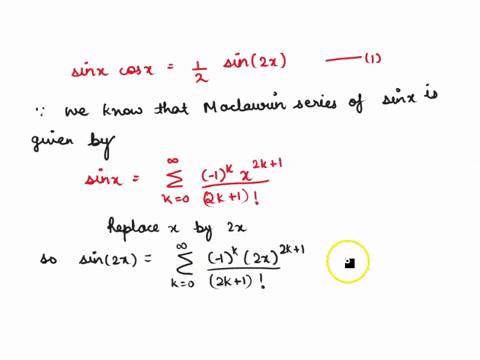 sinx cosx = 1/2 sin(2x) —— (1)
∵ we know that Maclawrin series of sinx is
given by
sinx = ∑_{k=0}^{∞} (-1)^k x^{2k+1} / (2k+1)!
Replace x by 2x
so sin(2x) = ∑_{k=0}^{∞} (-1)^k (2x)^{2k+1} / (2k+1)!